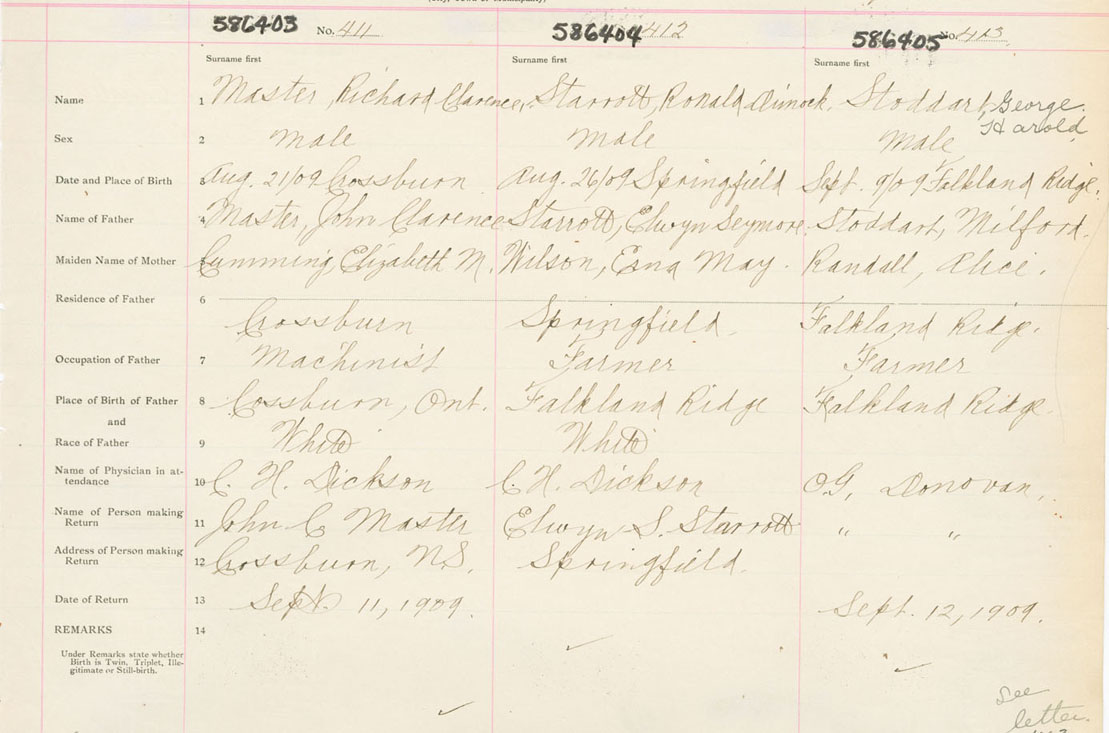 (City, Town or Municipality)
586403 No. 411 586404 412 586405 No. 413
Surname first Surname first Surname first
Name 1 Master, Richard Clarence. Starrott, Ronald Dimock. Stoddart, George
Harold
Sex 2 Male Male Male
Date and Place of Birth 3 Aug. 21/09 Crossburn Aug. 26/09 Springfield Sept. 9/09 Falkland Ridge.
Name of Father 4 Master, John Clarence Starrott, Elwyn Seymore. Stoddart, Milford.
Maiden Name of Mother Cumming, Elizabeth M. Wilson, Esna May. Randall, Alice.
Residence of Father 6
Crossburn Springfield. Falkland Ridge.
Occupation of Father 7 Machinist Farmer Farmer
Place of Birth of Father 8 Cossburn, Ont. Falkland Ridge Falkland Ridge.
and
Race of Father 9 White White
Name of Physician in at-
tendance 10 C. H. Dickson C. H. Dickson O.G. Donovan,
Name of Person making
Return 11 John C Master Elwyn S. Starrott " "
Address of Person making
Return 12 Crossburn, N.S. Springfield.
Date of Return 13 Sept. 11, 1909. Sept. 12, 1909.
REMARKS 14
Under Remarks state whether
Birth is Twin, Triplet, Ille-
gitimate or Still-birth.
See
letter.